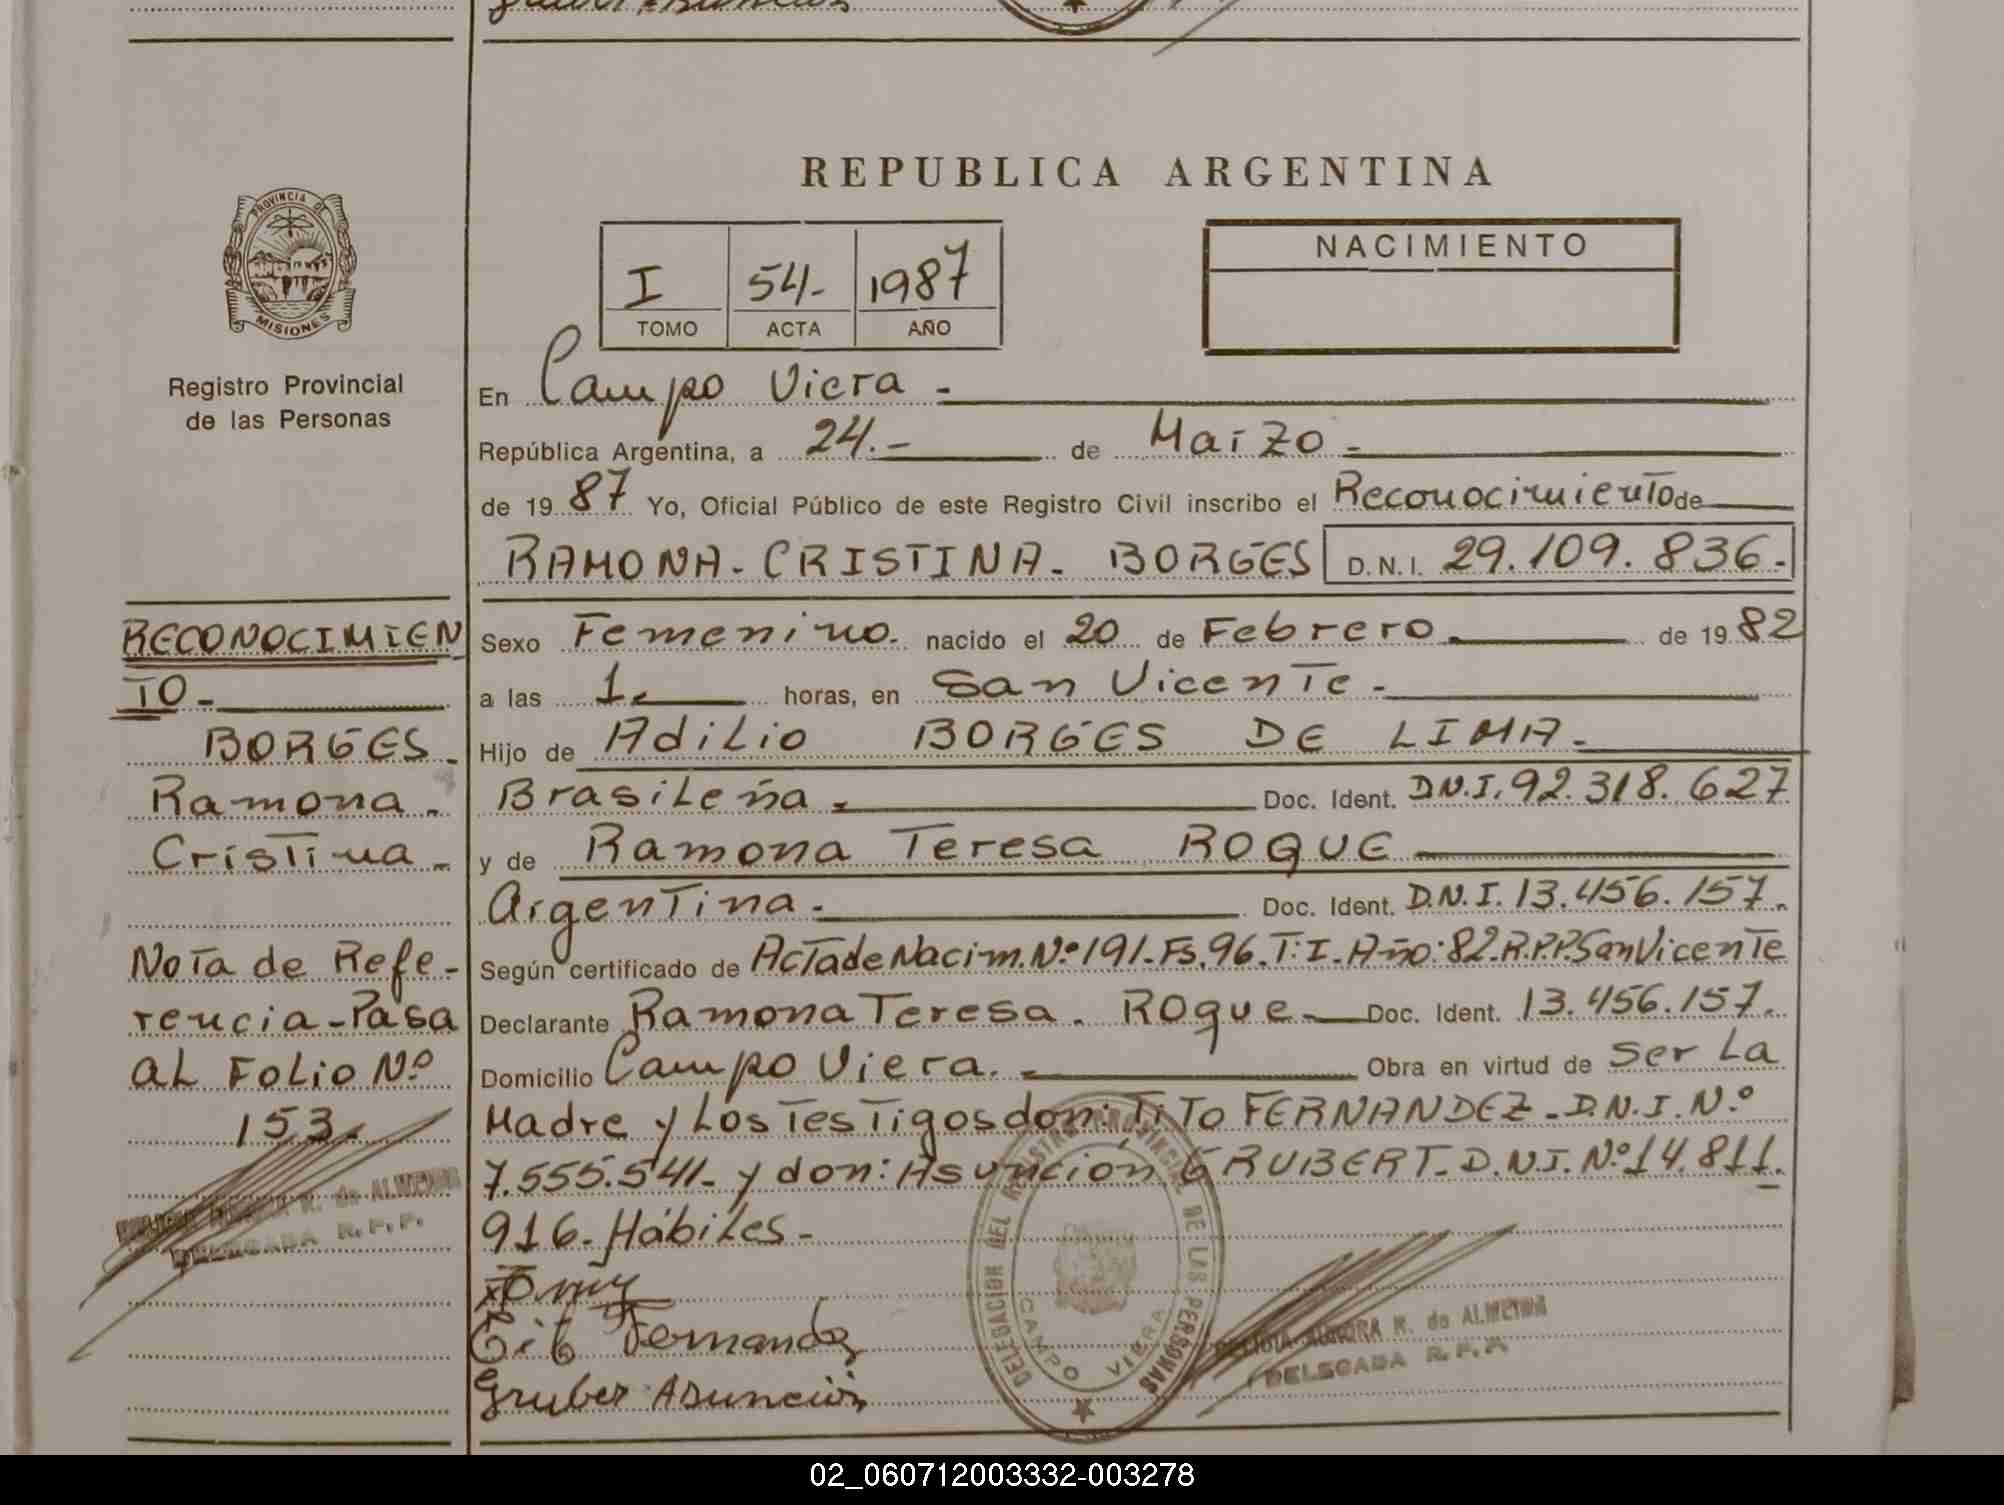 Gruber Asunción
REPUBLICA ARGENTINA
PROVINCIA DE
MISIONES
Registro Provincial
de las Personas
I 54- 1987
TOMO ACTA AÑO
NACIMIENTO
En Campo Viera -
República Argentina, a 24.- de Marzo -
de 19 87 Yo, Oficial Público de este Registro Civil inscribo el Reconocimiento de
RAMONA - CRISTINA - BORGES D.N.I. 29.109.836.-
RECONOCIMIEN
TO -
BORGES -
Ramona -
Cristina -
Nota de Refe-
rencia - Pasa
al Folio Nº
153.
R. de ALMEIDA
DELEGADA R.P.P.
Sexo Femenino. nacido el 20 de Febrero. de 19 82
a las 1. horas, en San Vicente -
Hijo de Adilio BORGES DE LIMA -
Brasileña - Doc. Ident. D.N.I. 92.318.627
y de Ramona Teresa ROQUE
Argentina - Doc. Ident. D.N.I. 13.456.157.
Según certificado de Acta de Nacim. Nº 191. Fs. 96. T: I. Año: 82. R.P.P. San Vicente
Declarante Ramona Teresa. Roque Doc. Ident. 13.456.157.
Domicilio Campo Viera. - Obra en virtud de Ser La
Madre y Los Testigos don: TiTO FERNANDEZ - D.N.I. Nº
7.555.541- y don: Asunción GRUBERT - D.N.I. Nº 14.811.
916 - Hábiles -
Tito Fernandez
Gruber Asunción
DELEGACION DEL REGISTRO PROVINCIAL DE LAS PERSONAS
CAMPO VIERA
R. de ALMEIDA
DELEGADA R.P.P.
02_060712003332-003278